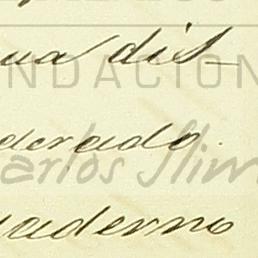 ua dis
NDACION
derado.
Carlos Slim
uaderno